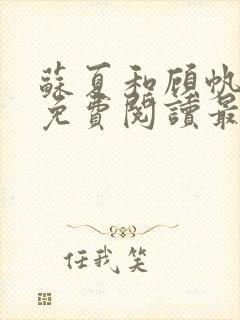 蘇夏和顧帆
免費閱讀最
任我笑